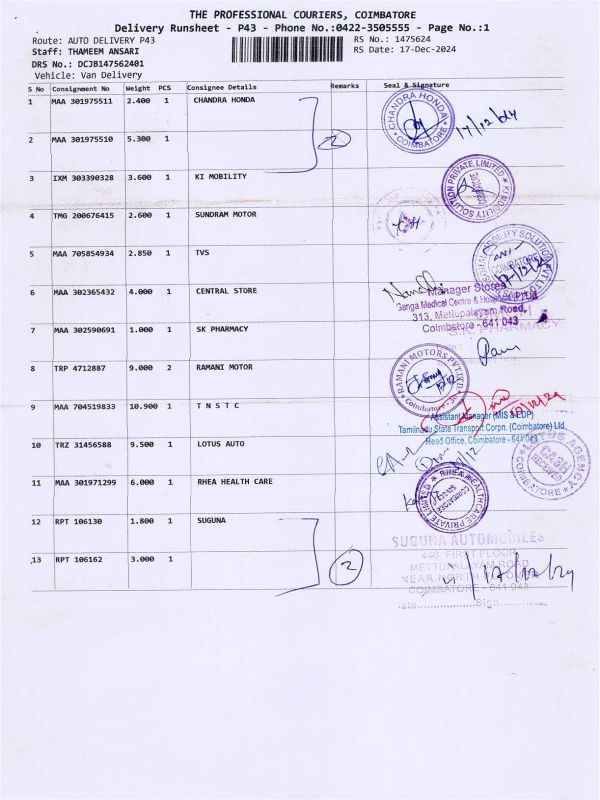 THE PROFESSIONAL COURIERS, COIMBATORE
Delivery Runsheet - P43 - Phone No.:0422-3505555 - Page No.:1
Route: AUTO DELIVERY P43 RS No.: 1475624
Staff: THAMEEM ANSARI RS Date: 17-Dec-2024
DRS No.: DCJB147562401
Vehicle: Van Delivery
S No Consignment No Weight PCS Consignee Details Remarks Seal & Signature
1 MAA 301975511 2.400 1 CHANDRA HONDA
CHANDRA HONDA COIMBATORE
17/12/24
2 MAA 301975510 5.300 1 2
3 IXM 303390328 3.600 1 KI MOBILITY
KI MOBILITY SOLUTION PRIVATE LIMITED
4 TMG 200676415 2.600 1 SUNDRAM MOTOR
5 MAA 705854934 2.850 1 TVS
MOBILITY SOLUTION PVT LTD
COIMBATORE
6 MAA 302365432 4.000 1 CENTRAL STORE
Manager Stores
Ganga Medical Centre &
313, Mettupalayam Road,
Coimbatore - 641 043
7 MAA 302590691 1.000 1 SK PHARMACY
S.K. PHARMACY
8 TRP 4712887 9.000 2 RAMANI MOTOR
RAMANI MOTORS PVT LTD
Coimbatore
9 MAA 704519833 10.900 1 T N S T C
Assistant Manager (MIS & EDP)
Tamilnadu State Transport Corpn. (Coimbatore) Ltd.
Head Office, Coimbatore - 641 043
10 TRZ 31456588 9.500 1 LOTUS AUTO
LOTUS AGENCY
CASH
RECEIVED
COIMBATORE
11 MAA 301971299 6.000 1 RHEA HEALTH CARE
RHEA HEALTHCARE PRIVATE LIMITED
COIMBATORE
12 RPT 106130 1.800 1 SUGUNA
SUGUNA AUTOMOBILES
446, FIRST FLOOR
METTUPALAYAM ROAD
NEAR NORTH
COIMBATORE - 641 043
13 RPT 106162 3.000 1 2
17/12/24
Date Sign